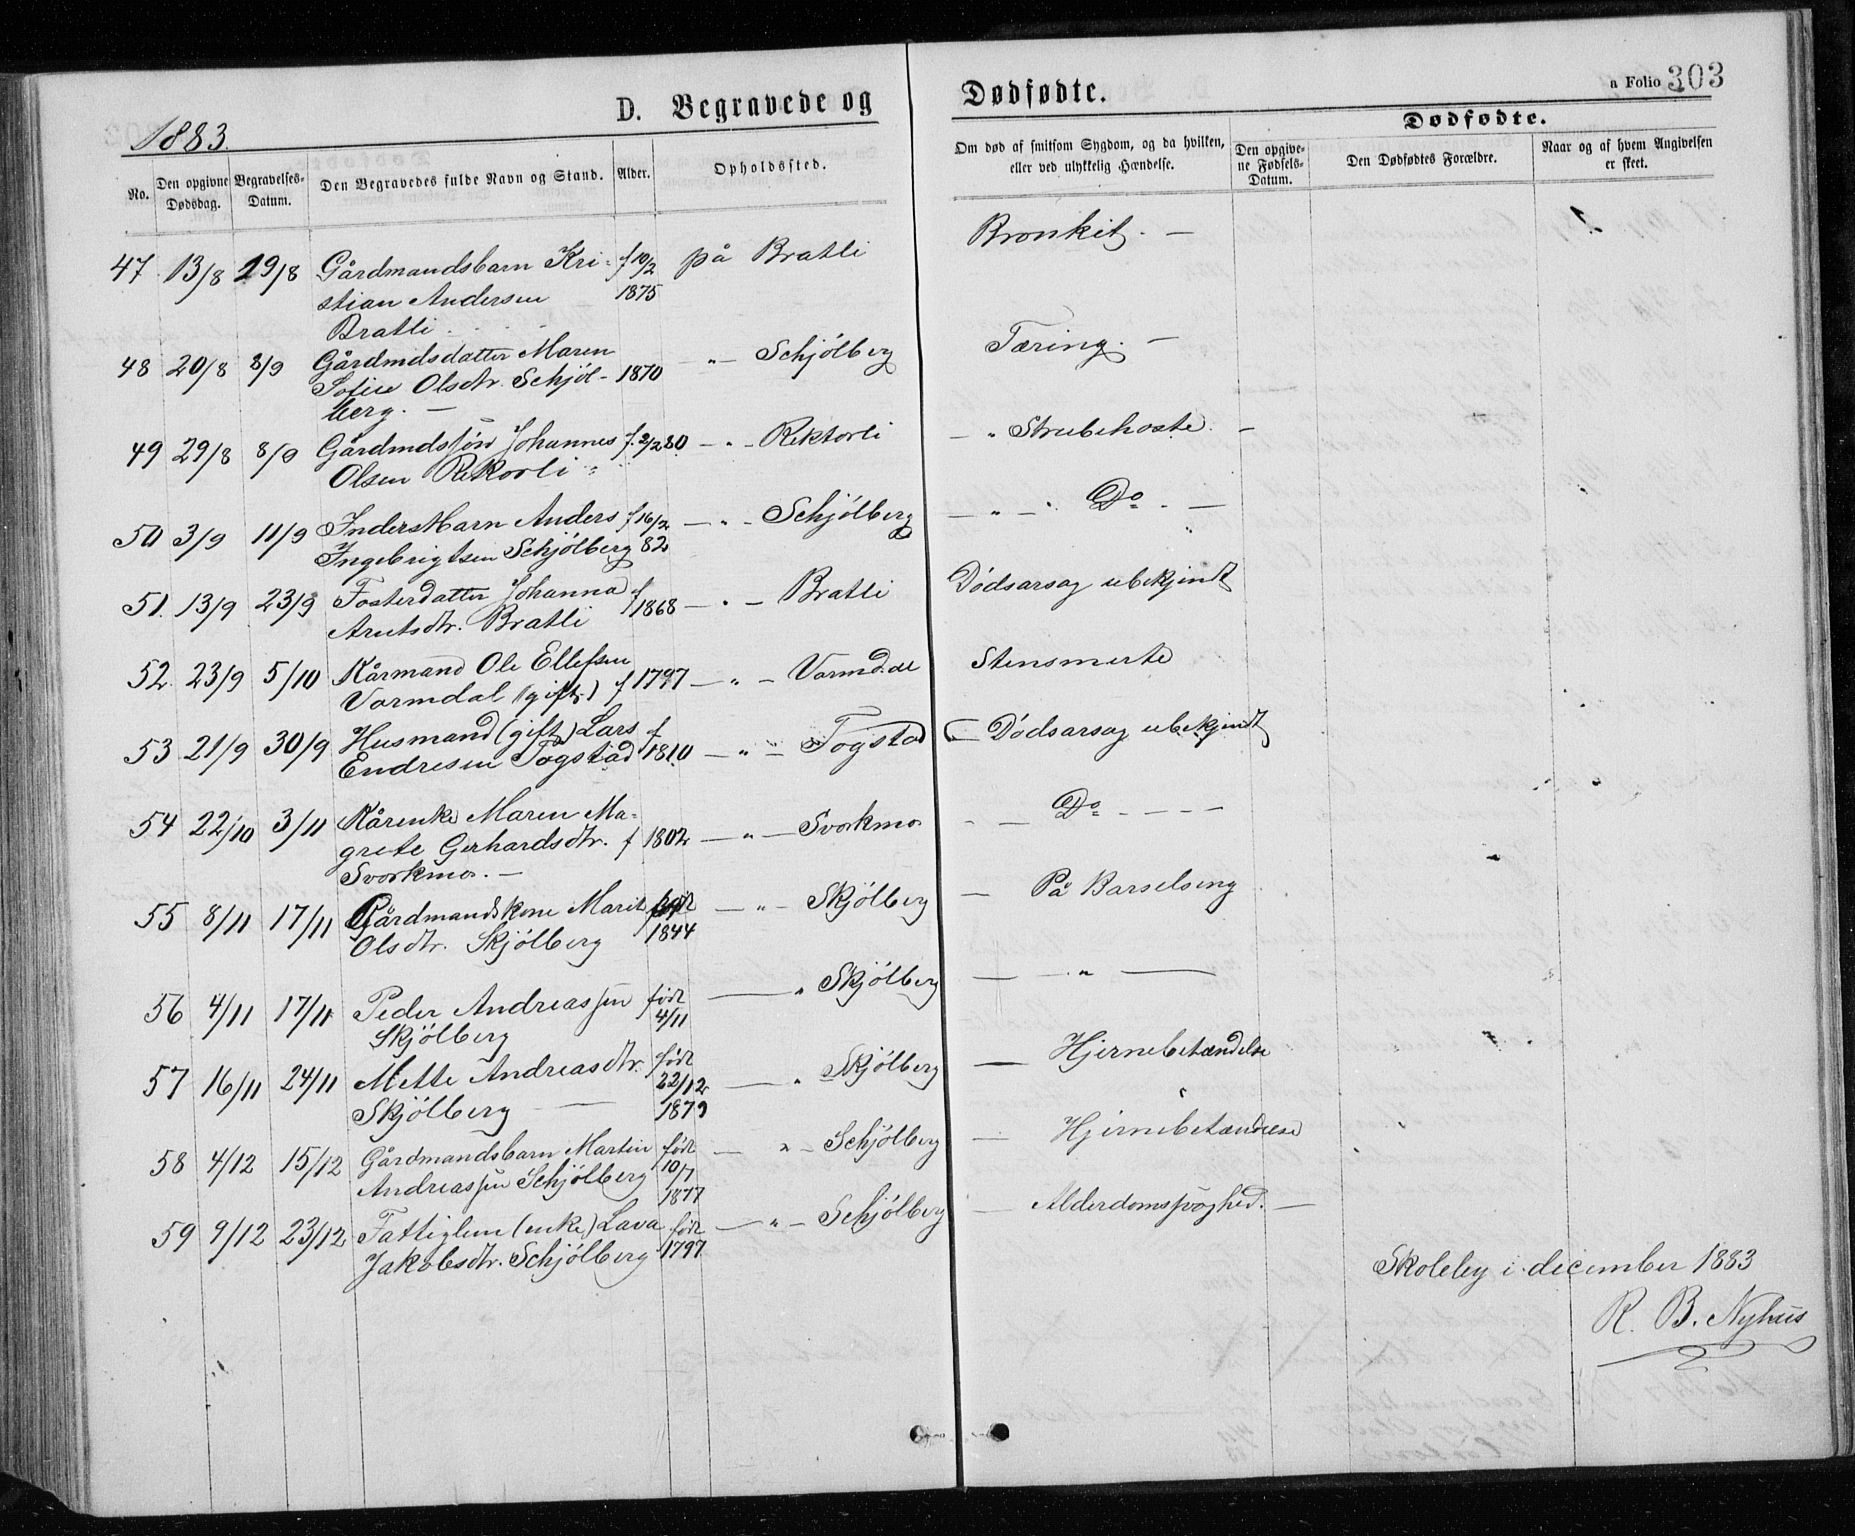 D. Begravede og Dødfødte.
a Folio 303
1883.
No.
Den opgivne Dødsdag.
Begravelses-Datum.
Den Begravedes fulde Navn og Stand.
Alder.
Opholdssted.
Om død af smitsom Sygdom, og da hvilken, eller ved ulykkelig Hændelse.
Dødfødte.
Den opgivne Fødsels-Datum.
Den Dødfødtes Forældre.
Naar og af hvem Angivelsen er skeet.
47 13/8 19/8 Gårdmandsbarn Kri- f 10/2 på Bratli Bronkit. —
stian Andersen 1875
Bratli.
48 20/8 8/9 Gårdmdsdatter Maren — " — Schjølberg Tæring. —
Sofie Olsdtr. Schjøl- 1870
berg. —
49 29/8 8/9 Gårdmdssøn Johannes f. 2/2 80 — " — Rektorli — " Strubehoste. —
Olsen Rekorli
50 3/9 11/9 Inderstbarn Anders f 16/2 — " — Schjølberg — " — " Do. —
Ingebrigtsen Schjølberg 82
51. 13/9 23/9 Fosterdatter Johanna f — " — Bratli Dødsarsag ubekjendt
Arntsdtr. Bratli 1868
52. 23/9 5/10 Kårmand Ole Ellefsen — " — Vormdal Stensmerte
Vormdal (gift.) f 1797
53 21/9 30/9 Husmand (gift) Lars f — " — Togstad — Dødsarsag ubekjendt
Endresen Togstad 1810
54 22/10 3/11 Kårenke Maren Ma- — " — Svorkmo — Do — — —
grete Gerhardsdtr. f 1802
Svorkmo. —
55 8/11 17/11 Gårdmandskone Marit født — " — Skjølberg — På Barselseng
Olsdtr. Skjølberg 1844
56 4/11 17/11 Peder Andreassen født — " Skjølberg — — " —
Skjølberg 4/11
57 16/11 24/11 Mette Andreasdtr. født — " Skjølberg — Hjernebetændelse
Skjølberg — 22/12
1879
58 4/12 15/12 Gårdmandsbarn Martin født — " — Schjølberg — Hjernebetændelse
Andreassen Schjølberg 10/7
1877
59 9/12 23/12 Fattiglem (enke) Lava født — " — Schjølberg — Alderdomssvaghed. —
Jakobsdtr. Schjølberg 1797
Skoleby i december 1883
R. B. Nyhus